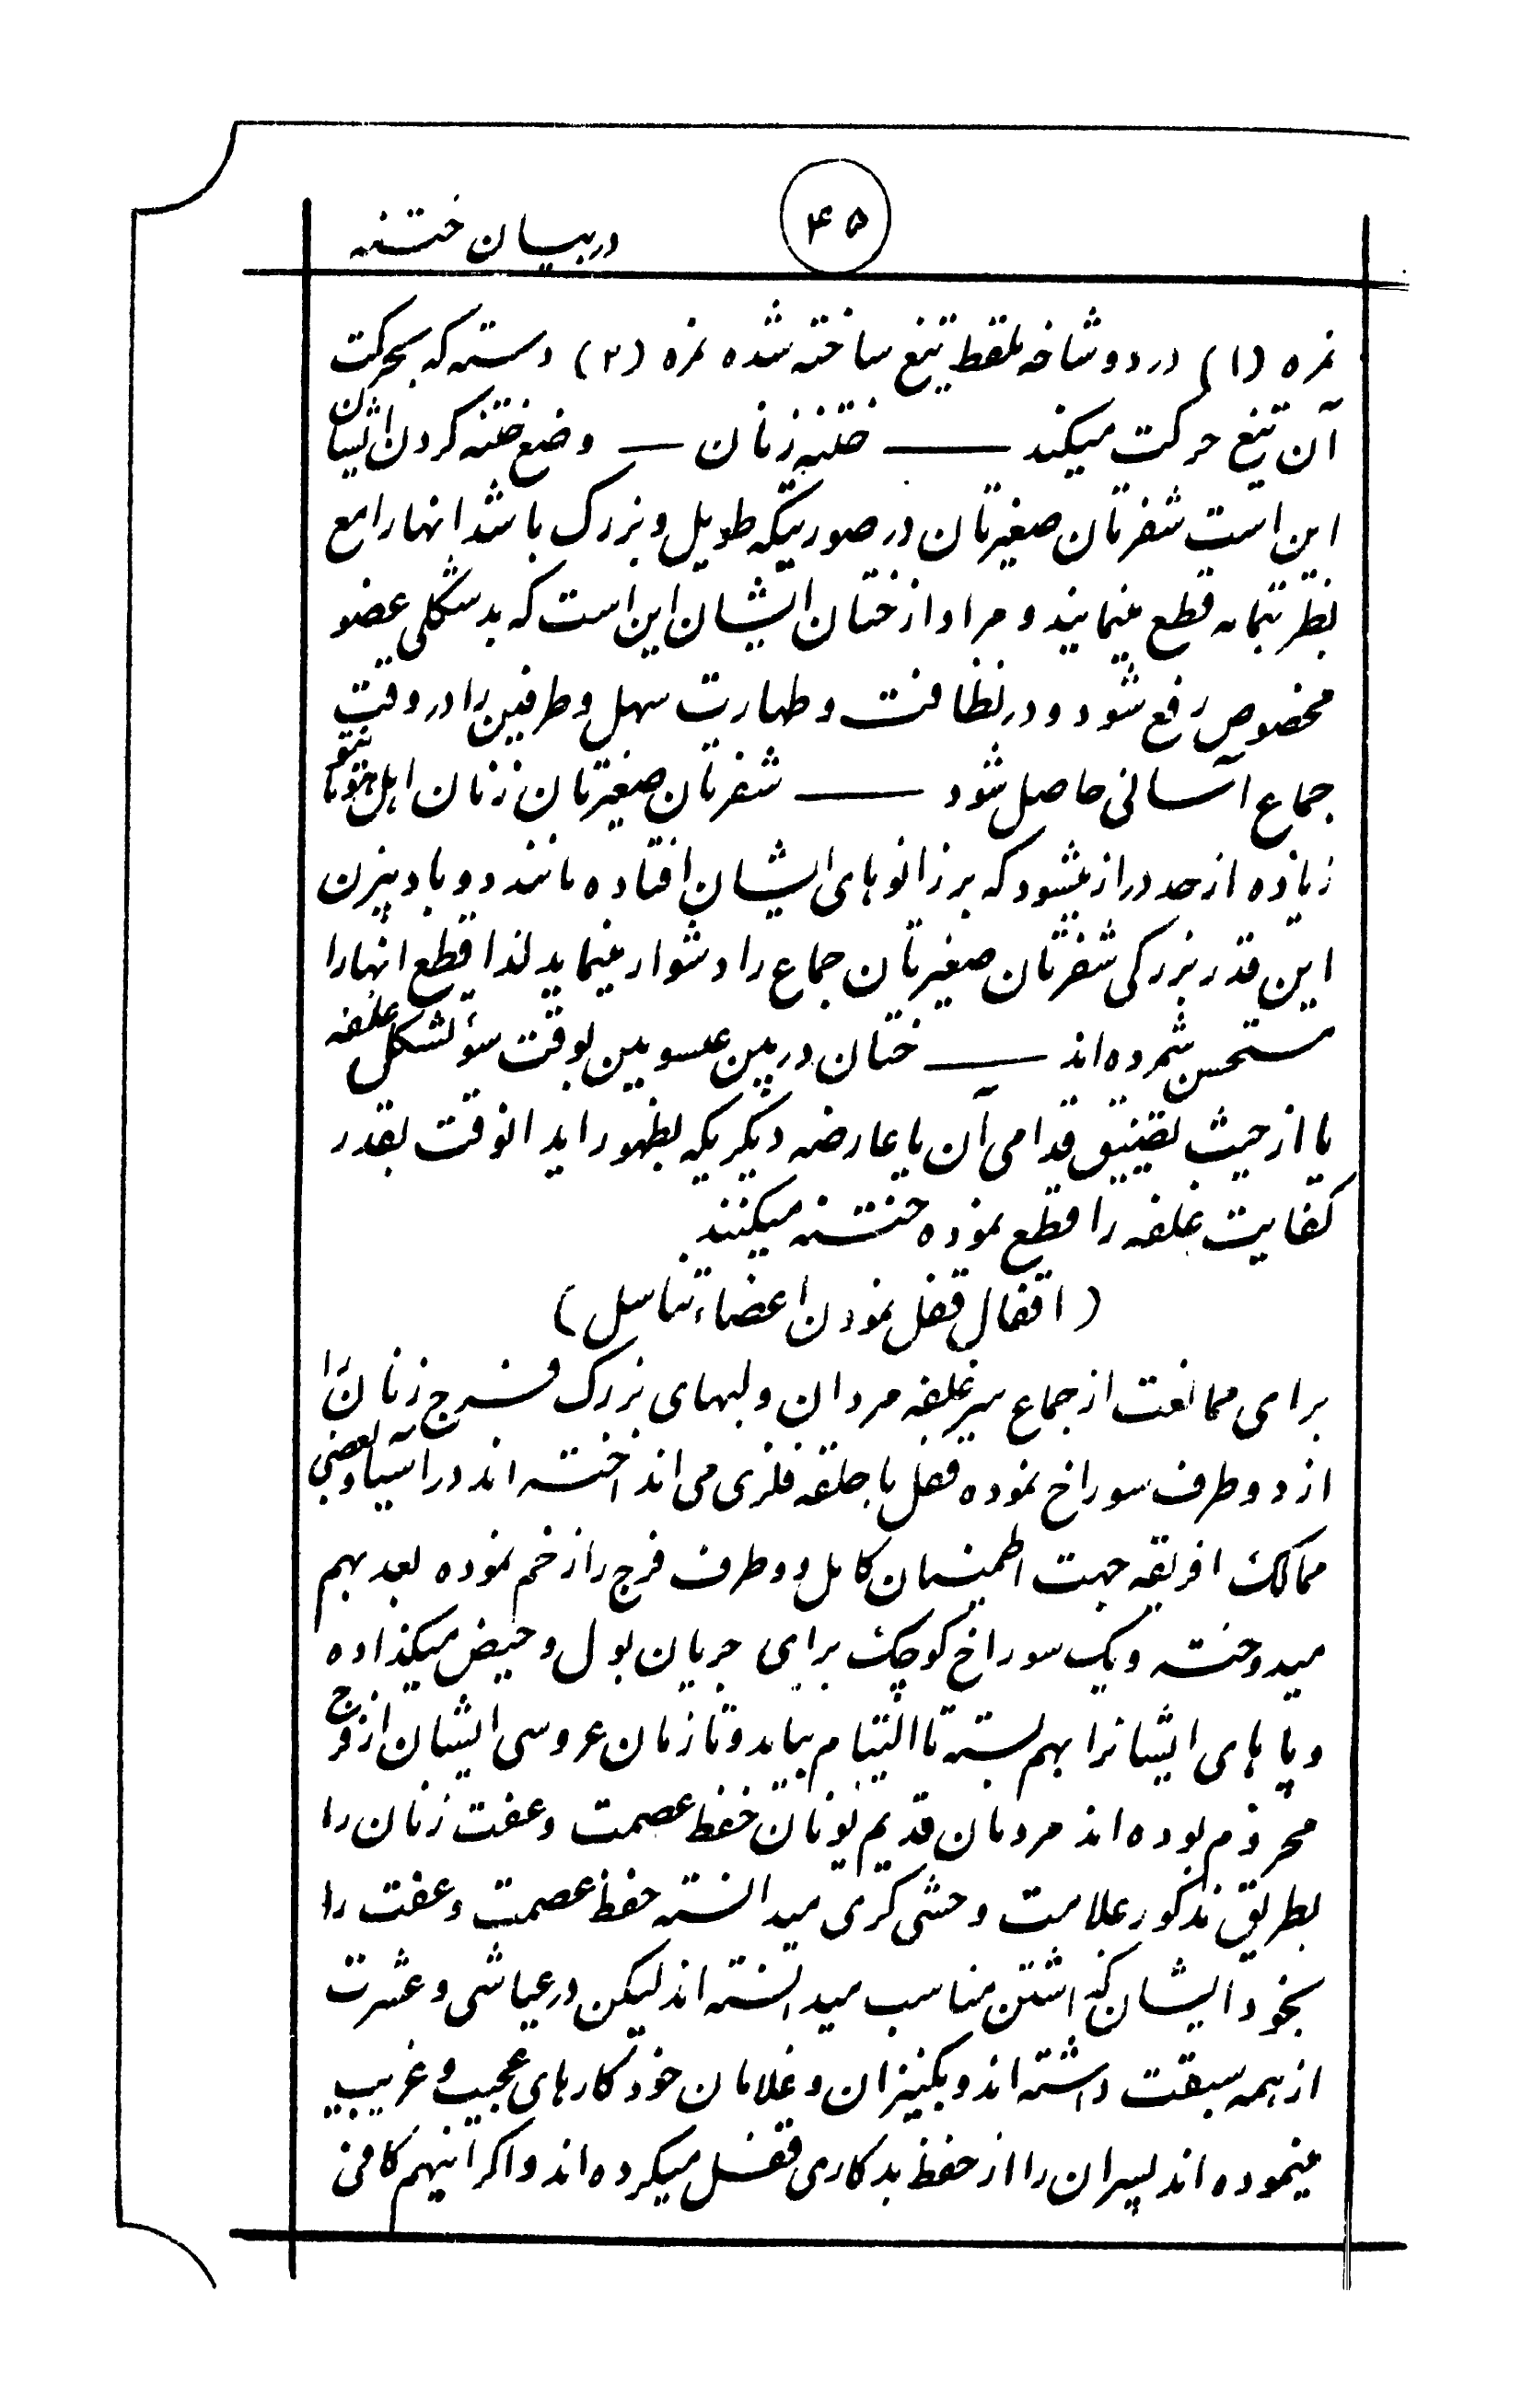 ۴۵
در بیان ختنه
نمره (۱) در دو شاخه ملقط تیغ ساخته شده نمره (۲) دسته که بحرکت
آن تیغ حرکت میکند — ختنه زنان — وضع ختنه کردن ایشان
این است شفرتان صغیرتان در صورتیکه طویل و بزرک باشد انها را مع
بظر بتمامه قطع مینمایند و مراد از ختان ایشان این است که بدشکلی عضو
مخصوص رفع شود و در نظافت و طهارت سهل و طرفین را در وقت
جماع آسانی حاصل شود — شفرتان صغیرتان زنان اهل
زیاده از حد دراز میشود که بر زانوهای ایشان افتاده مانند دو بادبیزن
این قدر بزرکی شفرتان صغیرتان جماع را دشوار مینماید لذا قطع انها را
مستحسن شمرده اند — ختان در بین عیسویین بوقت سوٴ تشکل غلفه
یا از حیث تضییق قدامی آن یا عارضه دیکریکه بظهور اید انوقت بقدر
کفایت غلفه را قطع نموده ختنه میکنند
(اقفال قفل نمودن اعضاء تناسل)
برای ممانعت از جماع سر غلفه مردان و لبهای بزرک فرج زنان را
از دو طرف سوراخ نموده قفل یا حلقه فلزی می انداخته اند در آسیا و بعضی
ممالک افریقه جهت اطمینان کامل دو طرف فرج را زخم نموده بعد بهم
میدوخته و یک سوراخ کوچک برای جریان بول و حیض میکذاده
و پاهای ایشانرا بهم بسته تا التیام بیاید و تا زمان عروسی ایشان از فرج
محروم بوده اند مردمان قدیم یونان حفظ عصمت و عفت زنان را
بطریق مذکور علامت وحشی کری میدانسته حفظ عصمت و عفت را
بخود ایشان کذاشتن مناسب میدانسته اند لیکن در عیاشی و عشرت
از همه سبقت داشته اند و بکنیزان و غلامان خود کارهای عجیب و غریب
مینموده اند پسران را از حفظ بدکاری قفل میکرده اند و اکر اینهم کافی